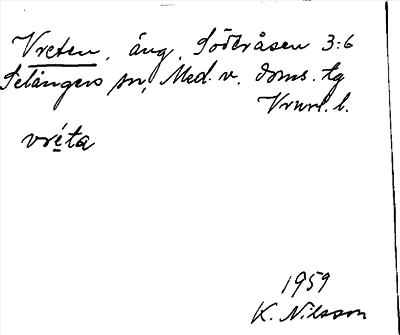 Vreten, äng, Söderåsen 3:6
Selångers sn, Med. v. doms. tg
Vrnrl. l.
vréta
1959
K. Nilsson